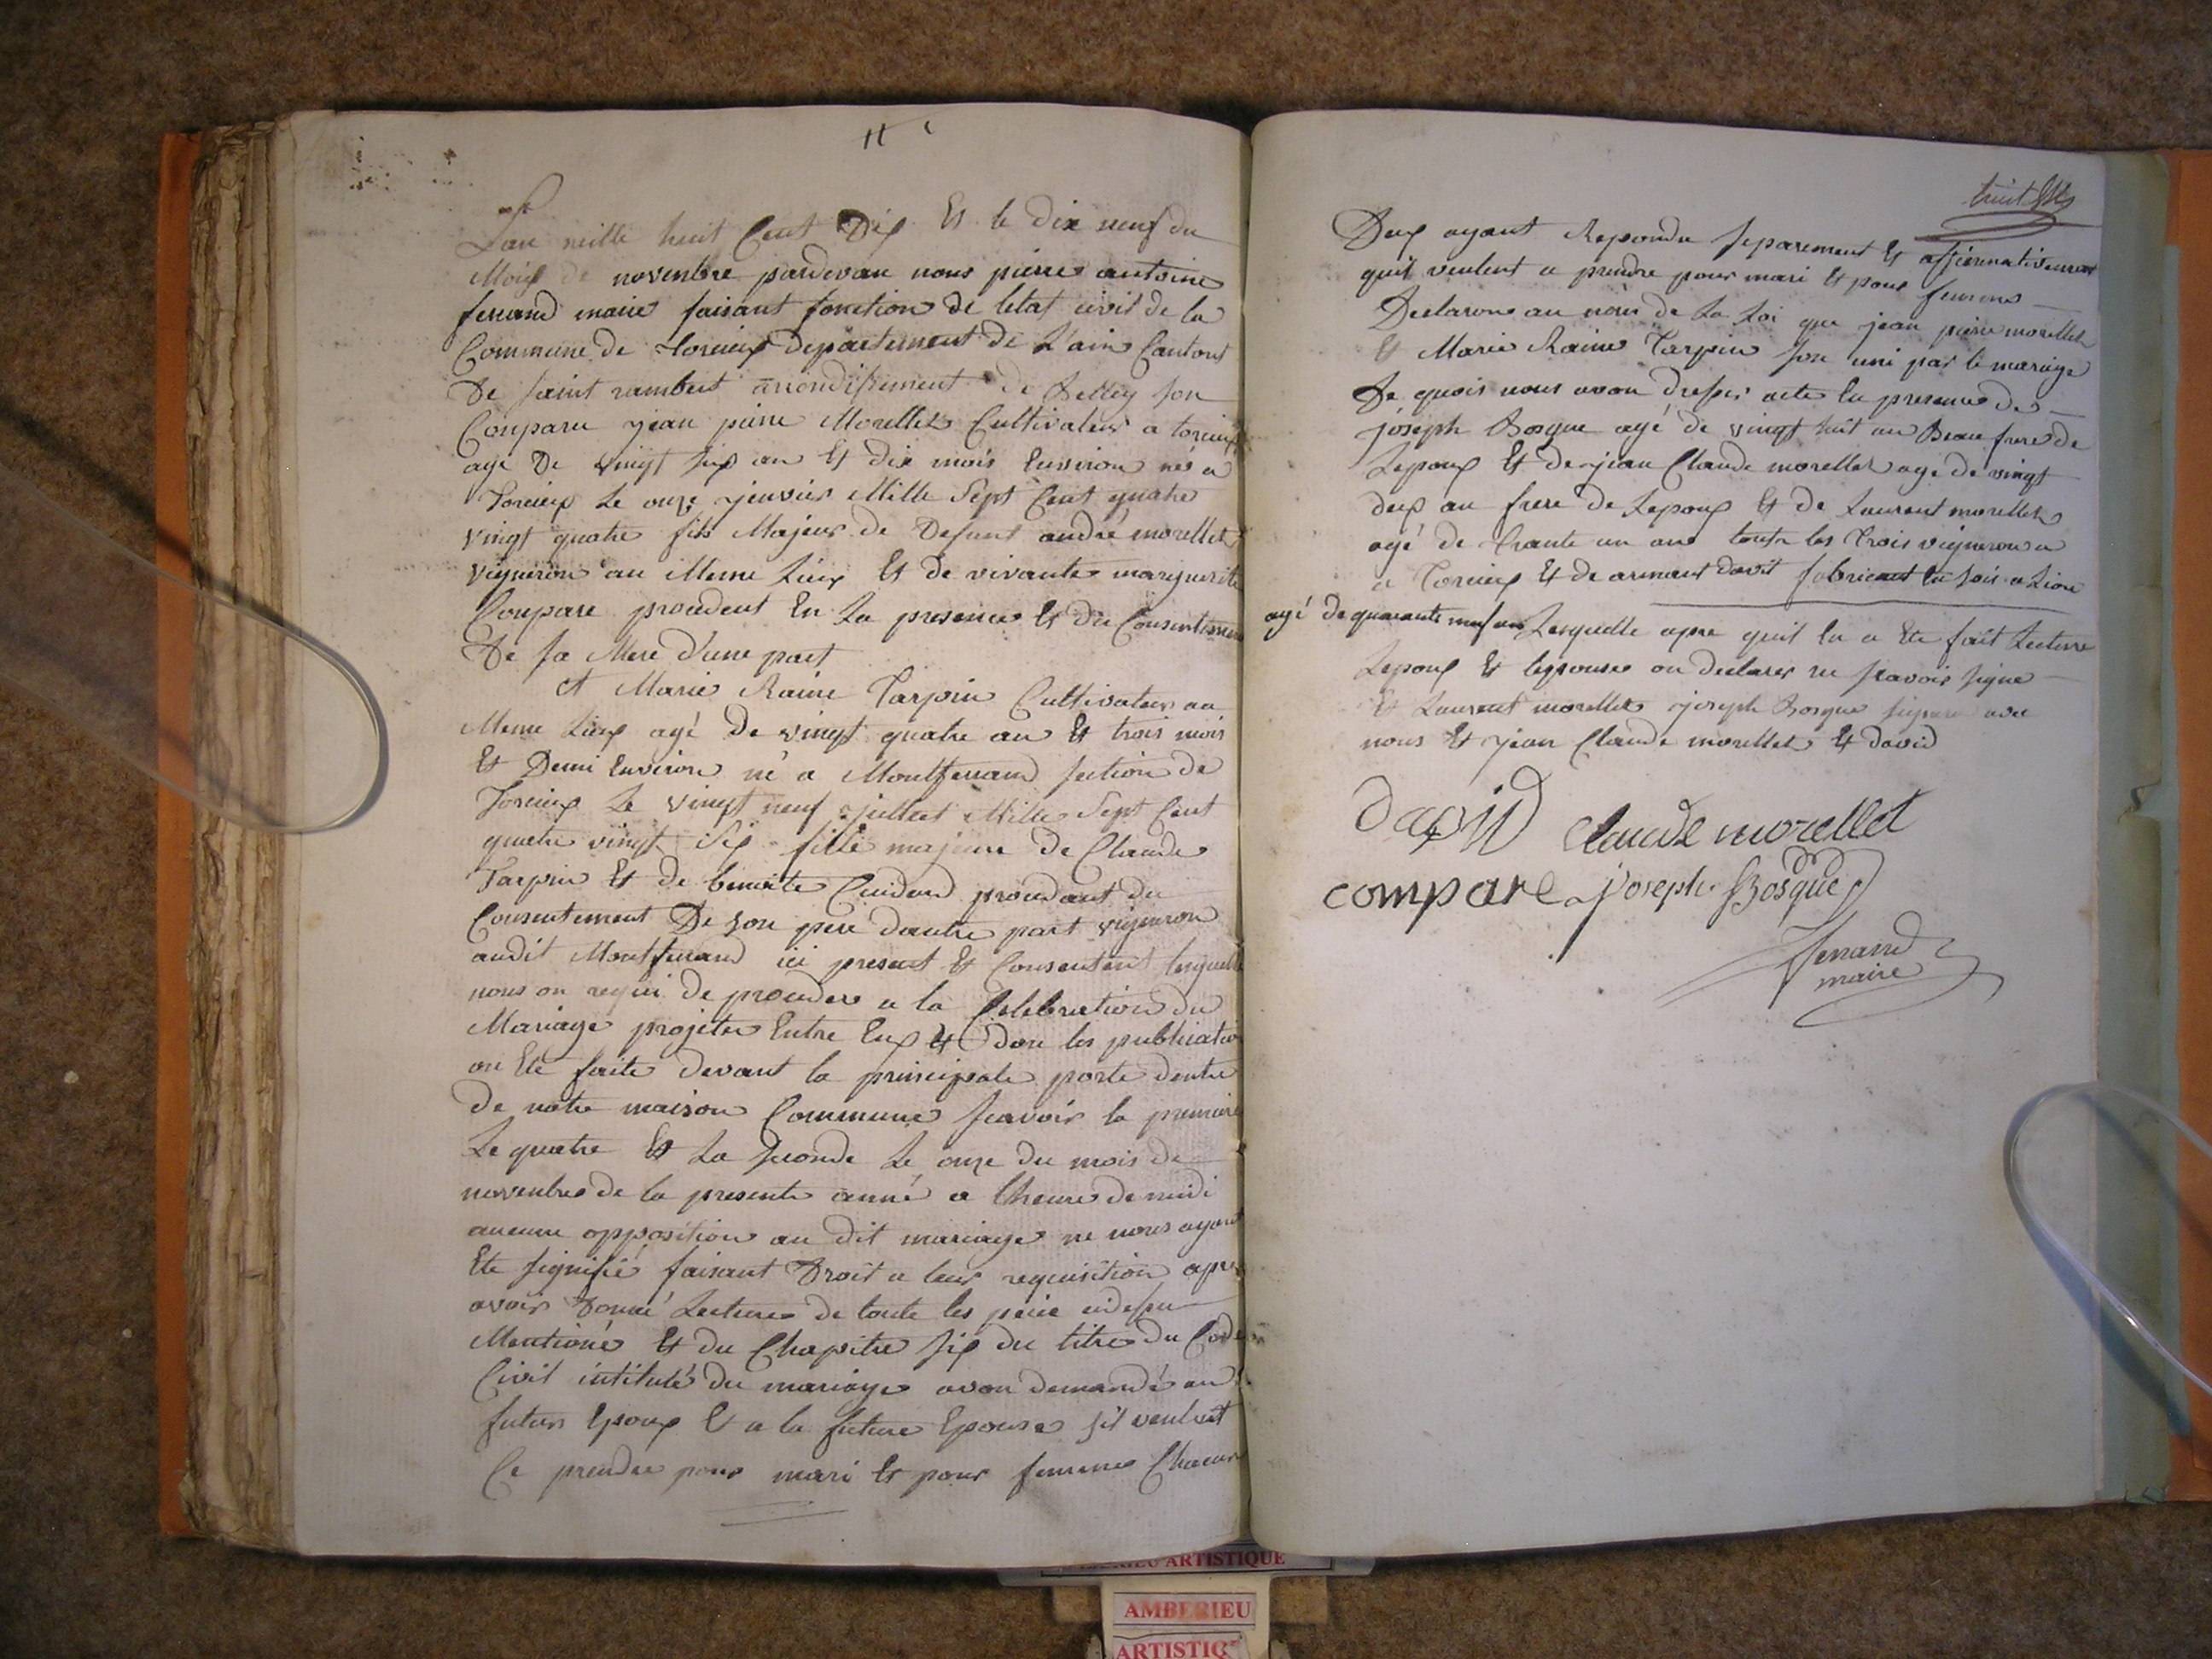 11
Lan mille huit Cent Dix Et le dix neuf du
Mois de novembre pardevan nous pierre antoine
ferrand maire faisant fonction de letat civil de la
Commune de Torcieux departement de L'ain Cantont
De saint rambert arrondissement de Belley son
Conparu jean pierre Morellet Cultivateur a torcieux
agé De vingt six an Et dix mois Environ nés a
Torcieux Le onze jenvier Mille Sept Cent quatre
vingt quatre fils Majeur de Defunt andré morellet
vigneron au Meme Lieux Et de vivante marguerite
Conpare procedent En La presence Et du Consentement
De sa Mere d'une part
et Marie Raine Tarpin Cultivateur au
Meme Lieux agé De vingt quatre an Et trois mois
Et Demi Environ né a Montferrand section de
Torcieux Le vingt neuf juillet Mille Sept Cent
quatre vingt Six fille majeure de Claude
Tarpin Et de benoite Cuidard procedant du
Consentement De son pere dautre part vigneron
audit Montferrand ici present Et Consentent lesquelle
nous on requi de proceder a la Celebration du
Mariage projeter Entre Eux Et don les publication
on Ete faite devant la principale porte dentre
de notre maison Commune scavoir la premiere
Le quatre Et La seconde Le onze du mois de
novenbre de la presente anné a lheure de midi
aucune opposition au dit mariage ne nous ayant
Ete signifié faisant Droit a leur requisition apres
avoir Donné Lecture de toute les peice cidessu
Mentioné Et du Chapitre six du titre Du Code
Civil intitulé du mariage avon demandé au
futur Epoux Et a la future Epouse sil veulent
Ce prendre pour mari Et pour femme Chacun
Deux ayant Repondu separement Et affirmativement
quil veulent ce prendre pour mari Et pour femme
Declarons au nom de La Loi que jean pierre morellet
Et Marie Raine Tarpin son uni par le mariage
De quois nous avon dresser acte En presence de
joseph Bosque agé de vingt huit an Beau frere de
Lepoux Et de jean Claude morellet agé de vingt
deux an frere de Lepoux Et de Laurent morellet
agé de trante un ans toute les trois vigneron a
a Torcieux Et de armant david fabricant En soie a Lion
agé de quarante neuf an Lesquelle apre quil En a Ete fait Lecture
Lepoux Et lepouse on declarer ne scavoir signe
Et Laurent morellet joseph Bosque signe avec
nous Et jean Claude morellet Et david
david Claude morellet
compare joseph Bosque
ferrand
maire
AMBERIEU ARTISTIQUE
AMBERIEU
ARTISTIQ